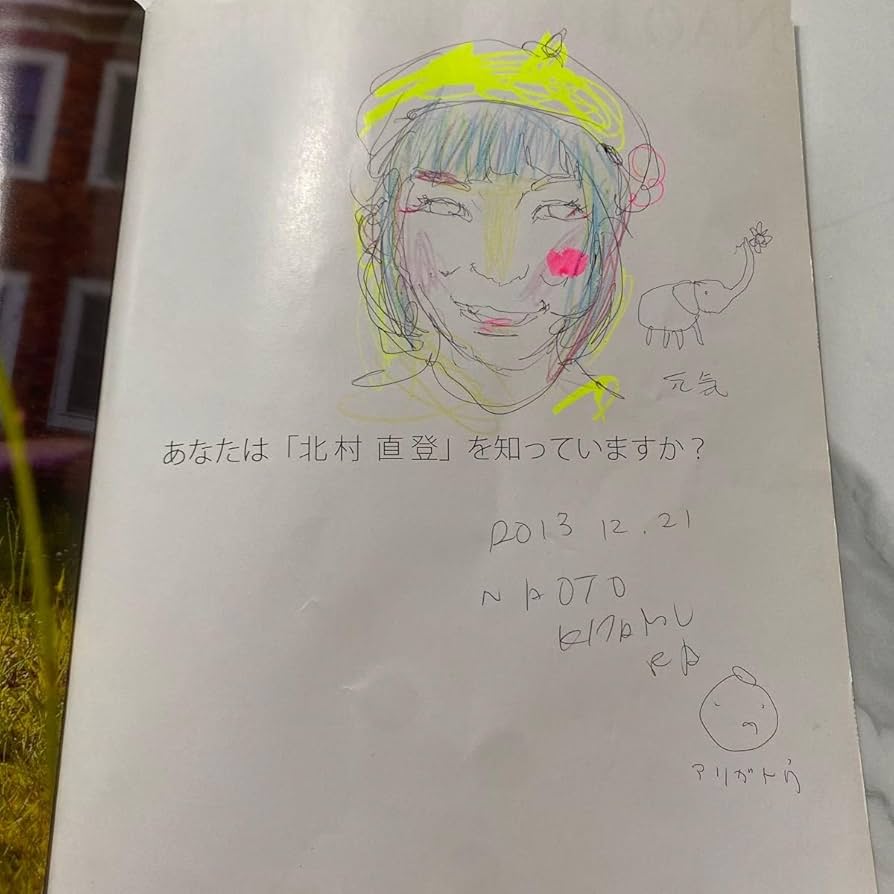 元気
あなたは「北村 直登」を知っていますか？
2013 12.21
NAOTO
KITAMU
RA
アリガトウ